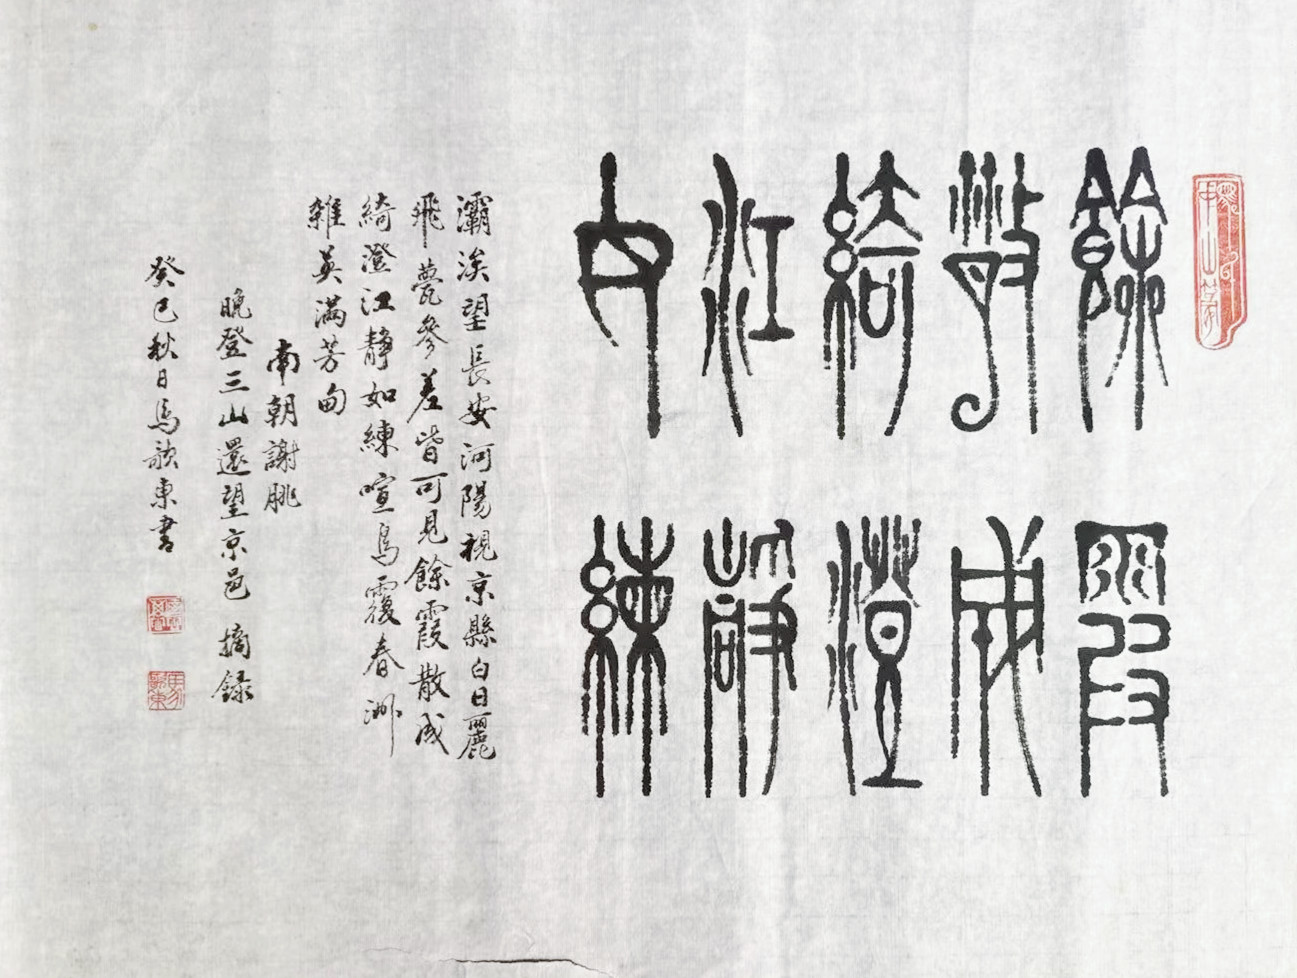 餘霞
散成
綺澄
江靜
如練
灞涘望長安河陽視京縣白日麗
飛甍參差皆可見餘霞散成
綺澄江靜如練喧鳥覆春洲
雜英滿芳甸
南朝謝朓
晚登三山還望京邑 摘錄
癸巳秋日馬東書
中山篆